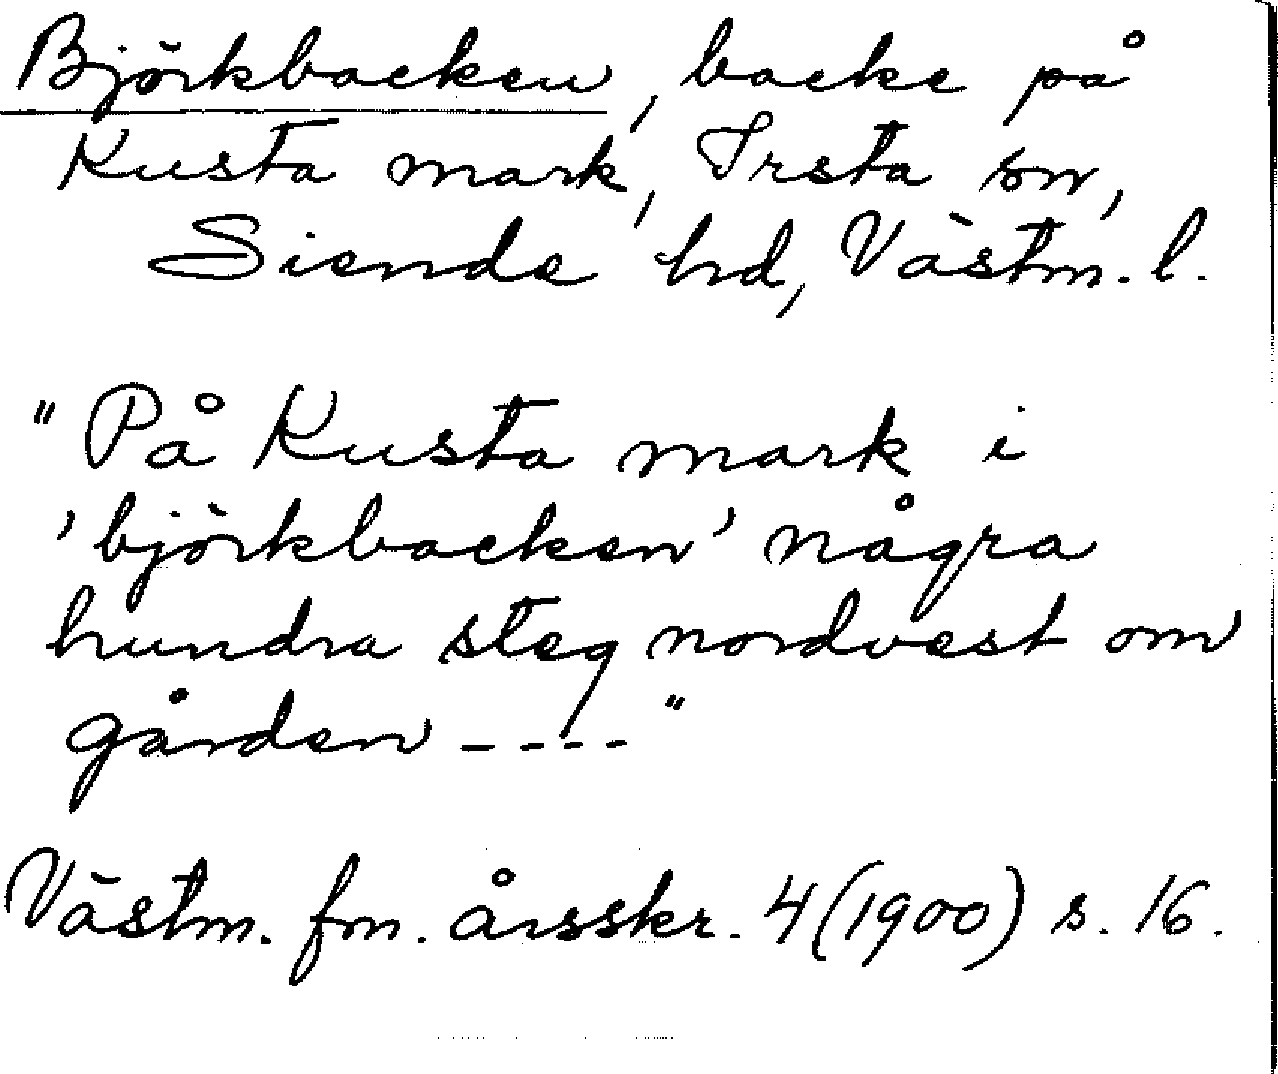 Björkbacken, backe på
Kusta mark, Irsta sn,
Siende hd, Västm. l.
"På Kusta mark i
'björkbacken' några
hundra steg nordvest om
gården ----"
Västm. fm. årsskr. 4 (1900) s. 16.